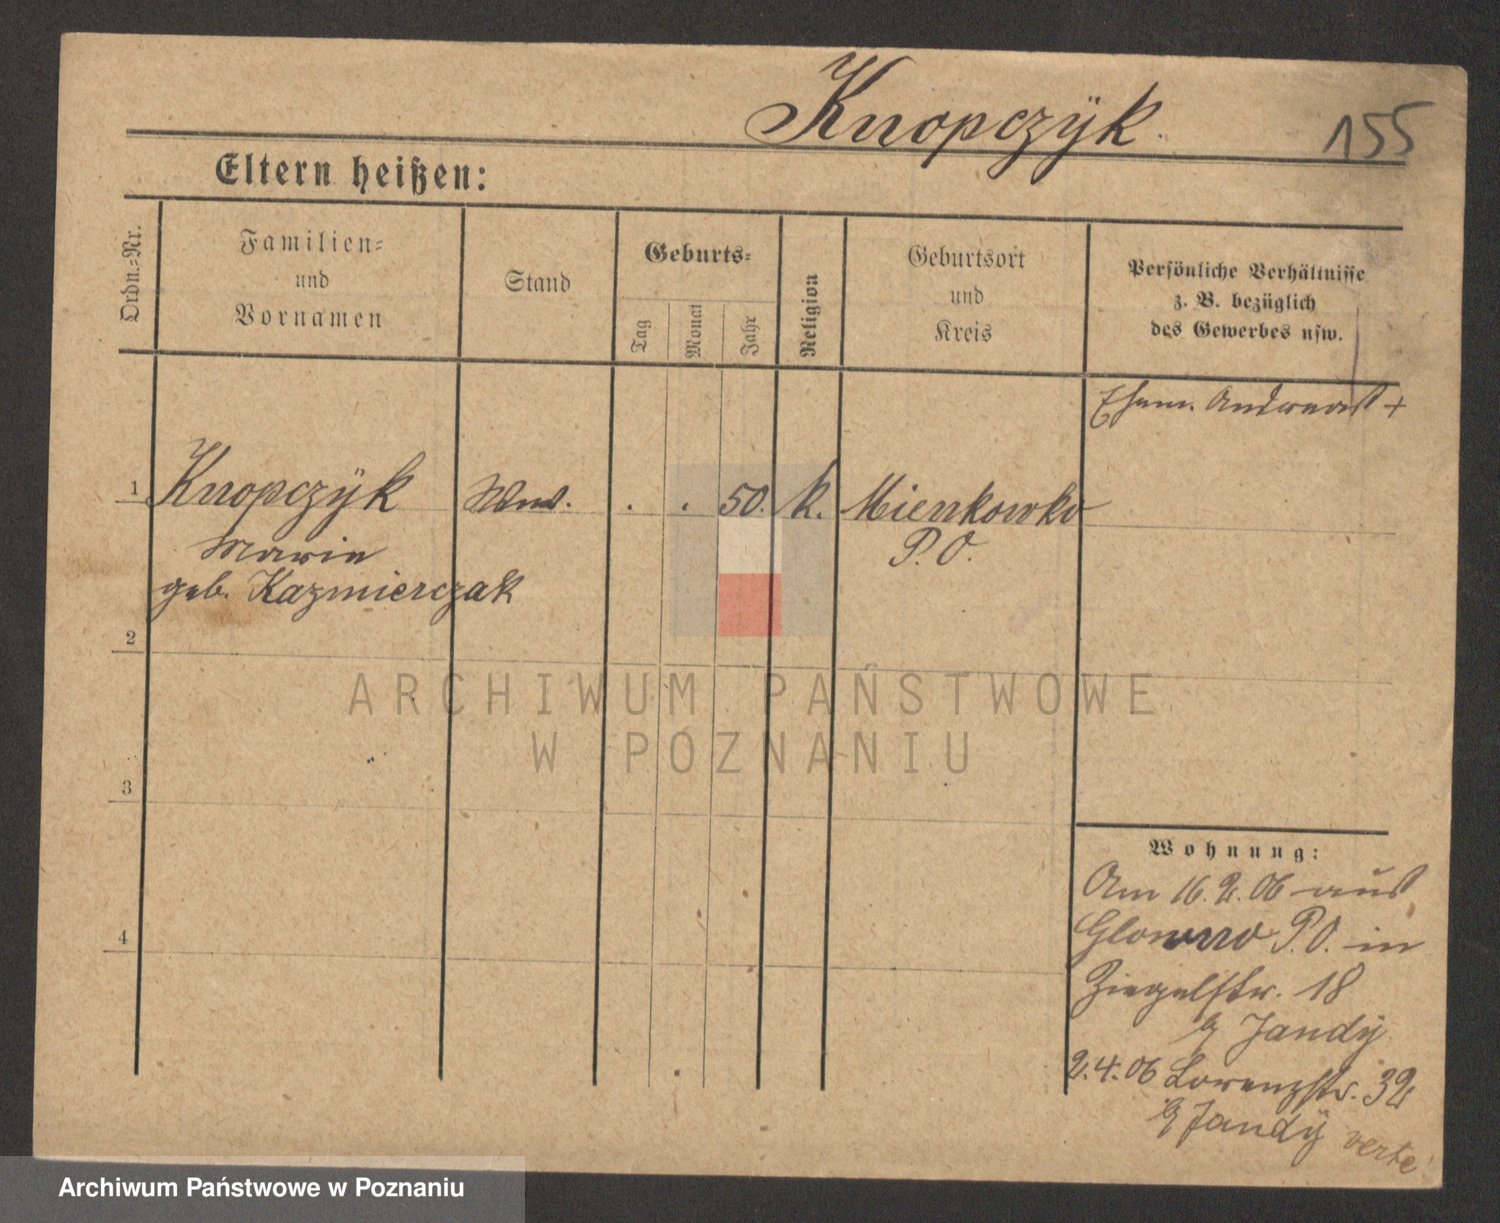 Knopczÿk.
155
Eltern heißen:
Ordn.-Nr.
Familien-
und
Vornamen
Stand
Geburts-
Tag
Monat
Jahr
Religion
Geburtsort
und
Kreis
Persönliche Verhältnisse
z. B. bezüglich
des Gewerbes usw.
Ehem. Andreas +
1 Knopczÿk Wwe. . . 50. k. Mienkowko
Marie P. O.
geb. Kazmierczak
2
3
4
ARCHIWUM PAŃSTWOWE
W POZNANIU
Wohnung:
Am 16.2.06 aus
Glowno P.O. in
Ziegelstr. 18
Jandÿ
2.4.06 Lorenzstr. 32
Jandÿ verte!
Archiwum Państwowe w Poznaniu